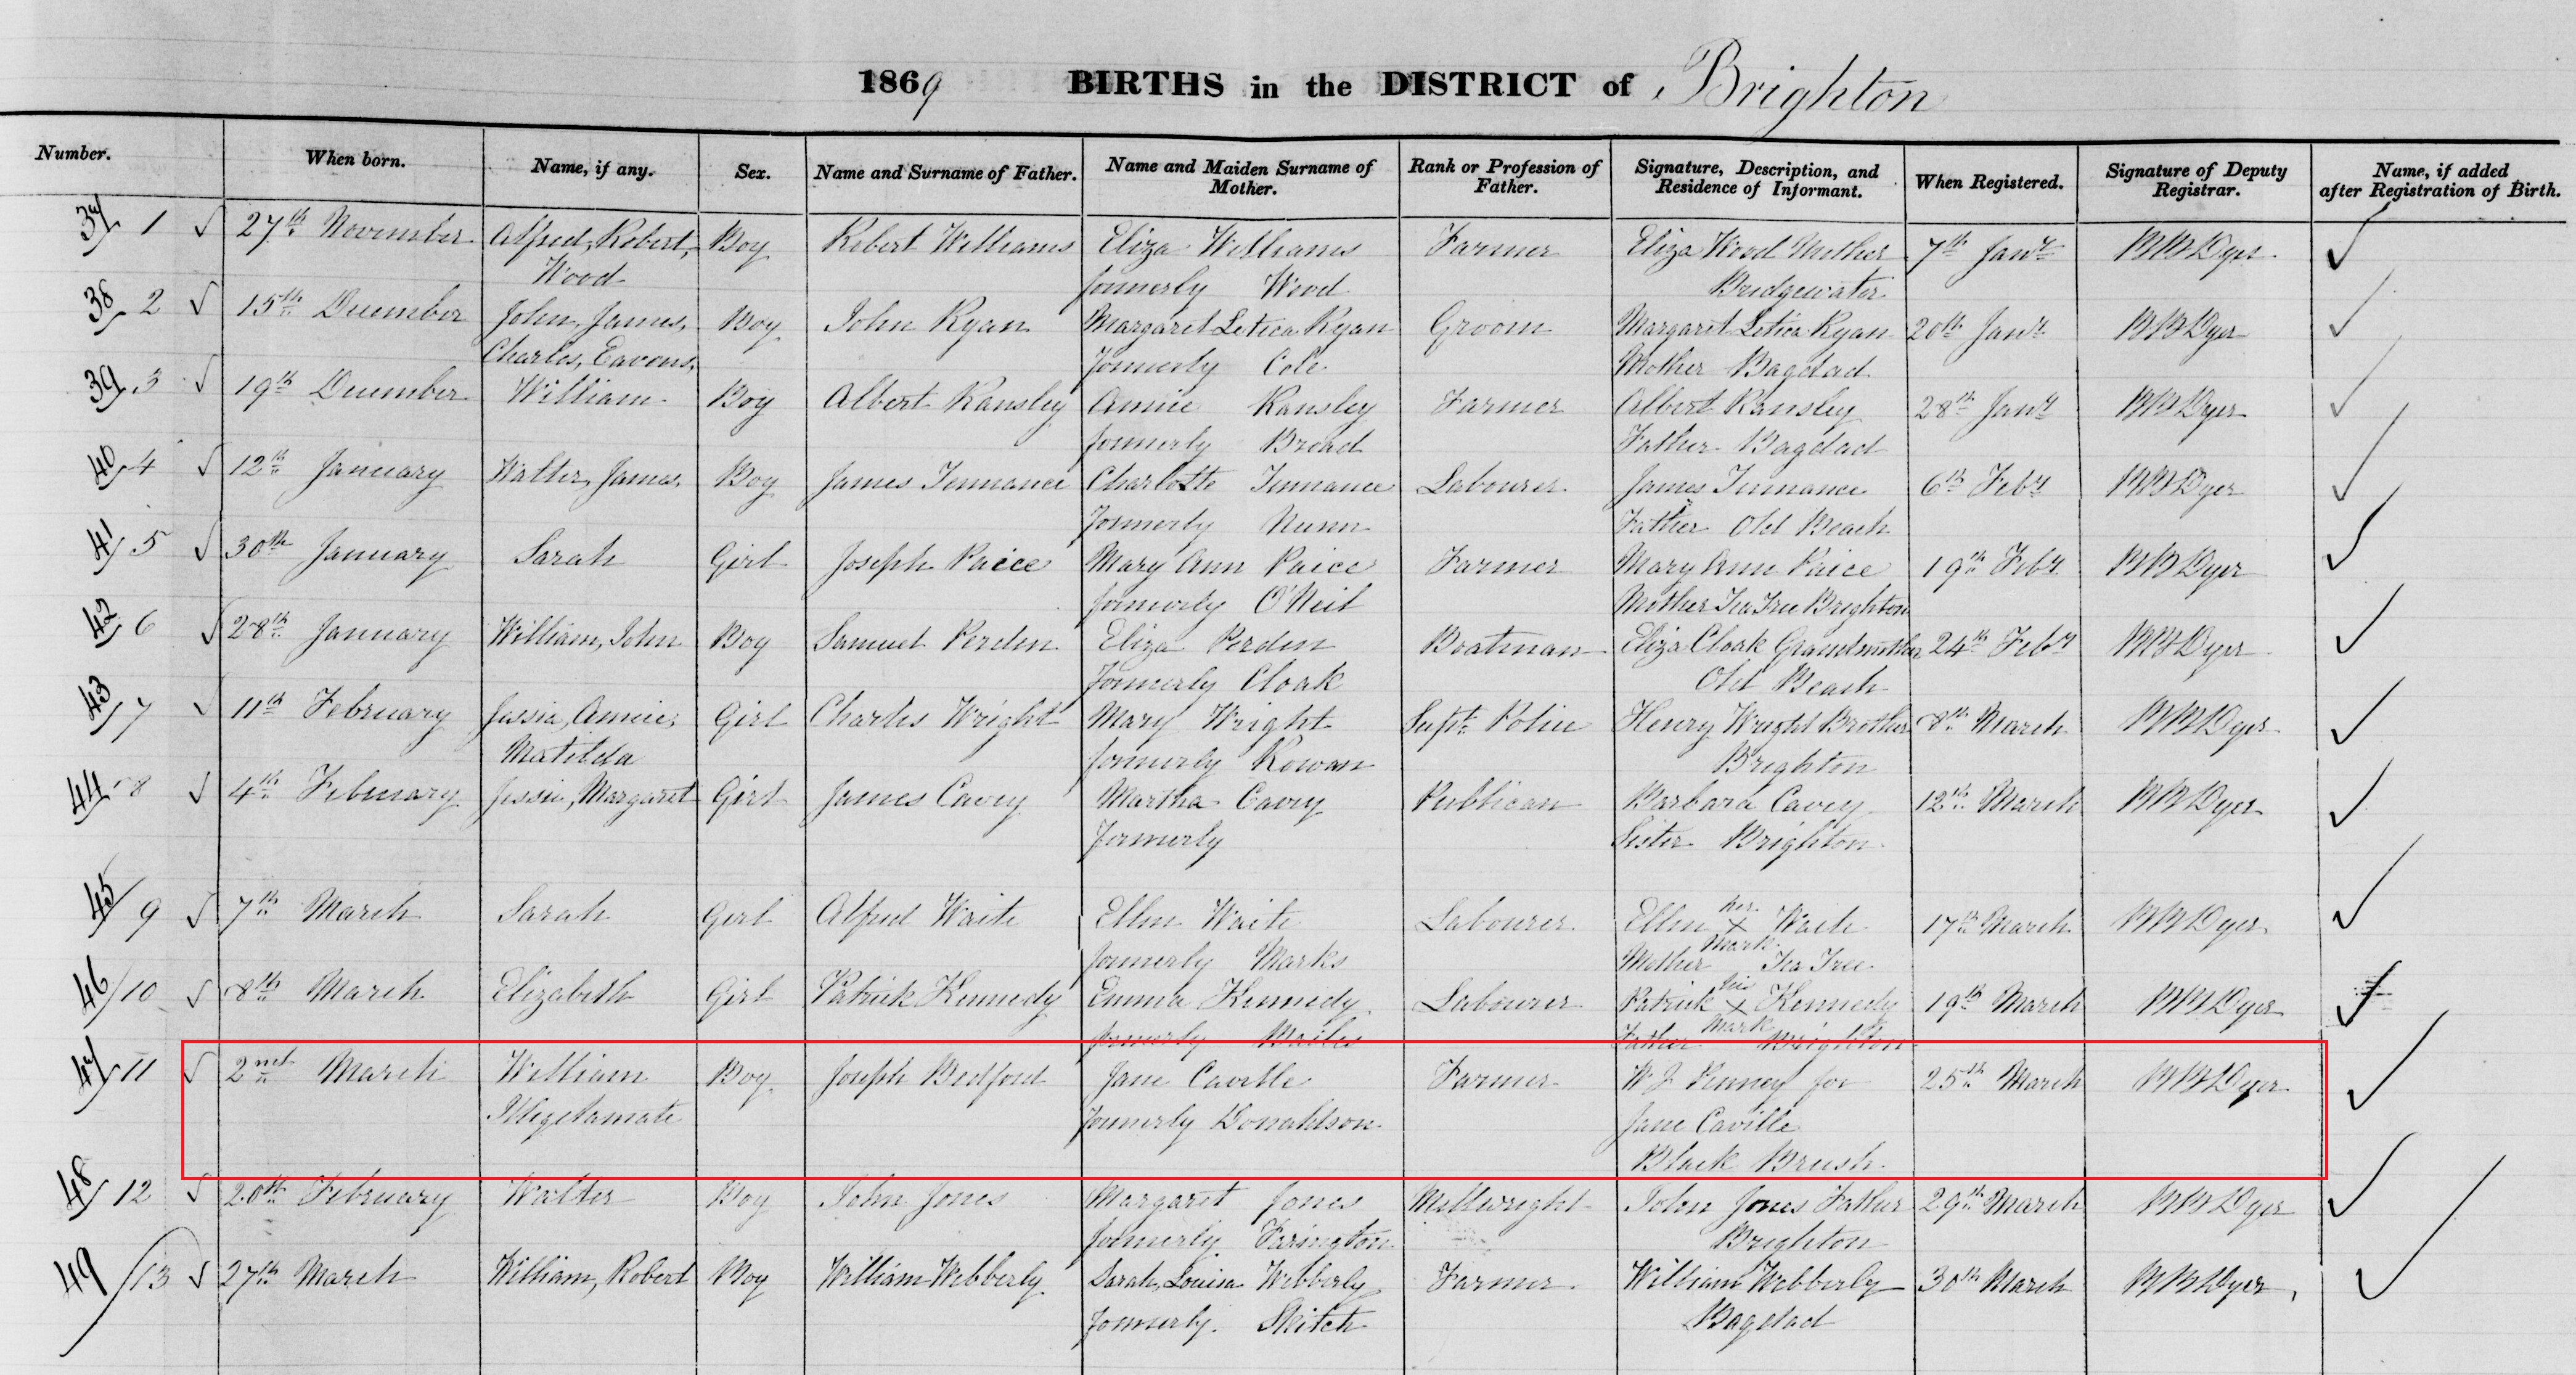 1869 BIRTHS in the DISTRICT of Brighton
Number. When born. Name, if any. Sex. Name and Surname of Father. Name and Maiden Surname of Mother. Rank or Profession of Father. Signature, Description, and Residence of Informant. When Registered. Signature of Deputy Registrar. Name, if added after Registration of Birth.
37/ 1 27th November Alfred, Robert, Boy Robert Williams Eliza Williams Farmer Eliza Wood Mother 7th Jany Dyer
Wood formerly Wood Bridgewater
38/ 2 15th December John, James, Boy John Ryan Margaret Letica Ryan Groom Margaret Letica Ryan 20th Jany Dyer
Charles, Eavens, formerly Cole Mother Bagdad
39/ 3 19th December William Boy Albert Kansley Annie Kansley Farmer Albert Kansley 28th Jany Dyer
formerly Broad Father Bagdad
40/ 4 12th January Walter, James, Boy James Tennance Charlotte Tennance Labourer James Tennance 6th Feby Dyer
formerly Nunn Father Old Beach
41/ 5 30th January Sarah Girl Joseph Paice Mary Ann Paice Farmer Mary Ann Paice 19th Feby Dyer
formerly O'Neil Mother Tea Tree Brighton
42/ 6 28th January William, John Boy Samuel Perdin Eliza Perdin Boatman Eliza Cloak Grandmother 24th Feby Dyer
formerly Cloak Old Beach
43/ 7 11th February Jessie, Annie, Girl Charles Wright Mary Wright Supt Police Henry Wright Brother 8th March Dyer
Matilda formerly Rowan Brighton
44/ 8 4th February Jessie, Margaret Girl James Cavey Martha Cavey Publican Barbara Cavey 12th March Dyer
formerly Sister Brighton
45/ 9 7th March Sarah Girl Alfred Waite Ellen Waite Labourer Ellen her X Waite 17th March Dyer
formerly Marks Mother Mark Tea Tree
46/ 10 8th March Elizabeth Girl Patrick Kennedy Emma Kennedy Labourer Patrick his X Kennedy 19th March Dyer
formerly Bailes Father Mark Brighton
47/ 11 2nd March William Boy Joseph Bedford Jane Caville Farmer W J Kenney for 25th March Dyer
Illegetamate formerly Donaldson Jane Caville
Black Brush
48/ 12 20th February Walter Boy John Jones Margaret Jones Millwright John Jones Father 29th March Dyer
formerly Farington Brighton
49/ 13 27th March William, Robert Boy William Webberly Sarah, Louisa Webberly Farmer William Webberly 30th March Dyer
formerly Skitch Bagdad